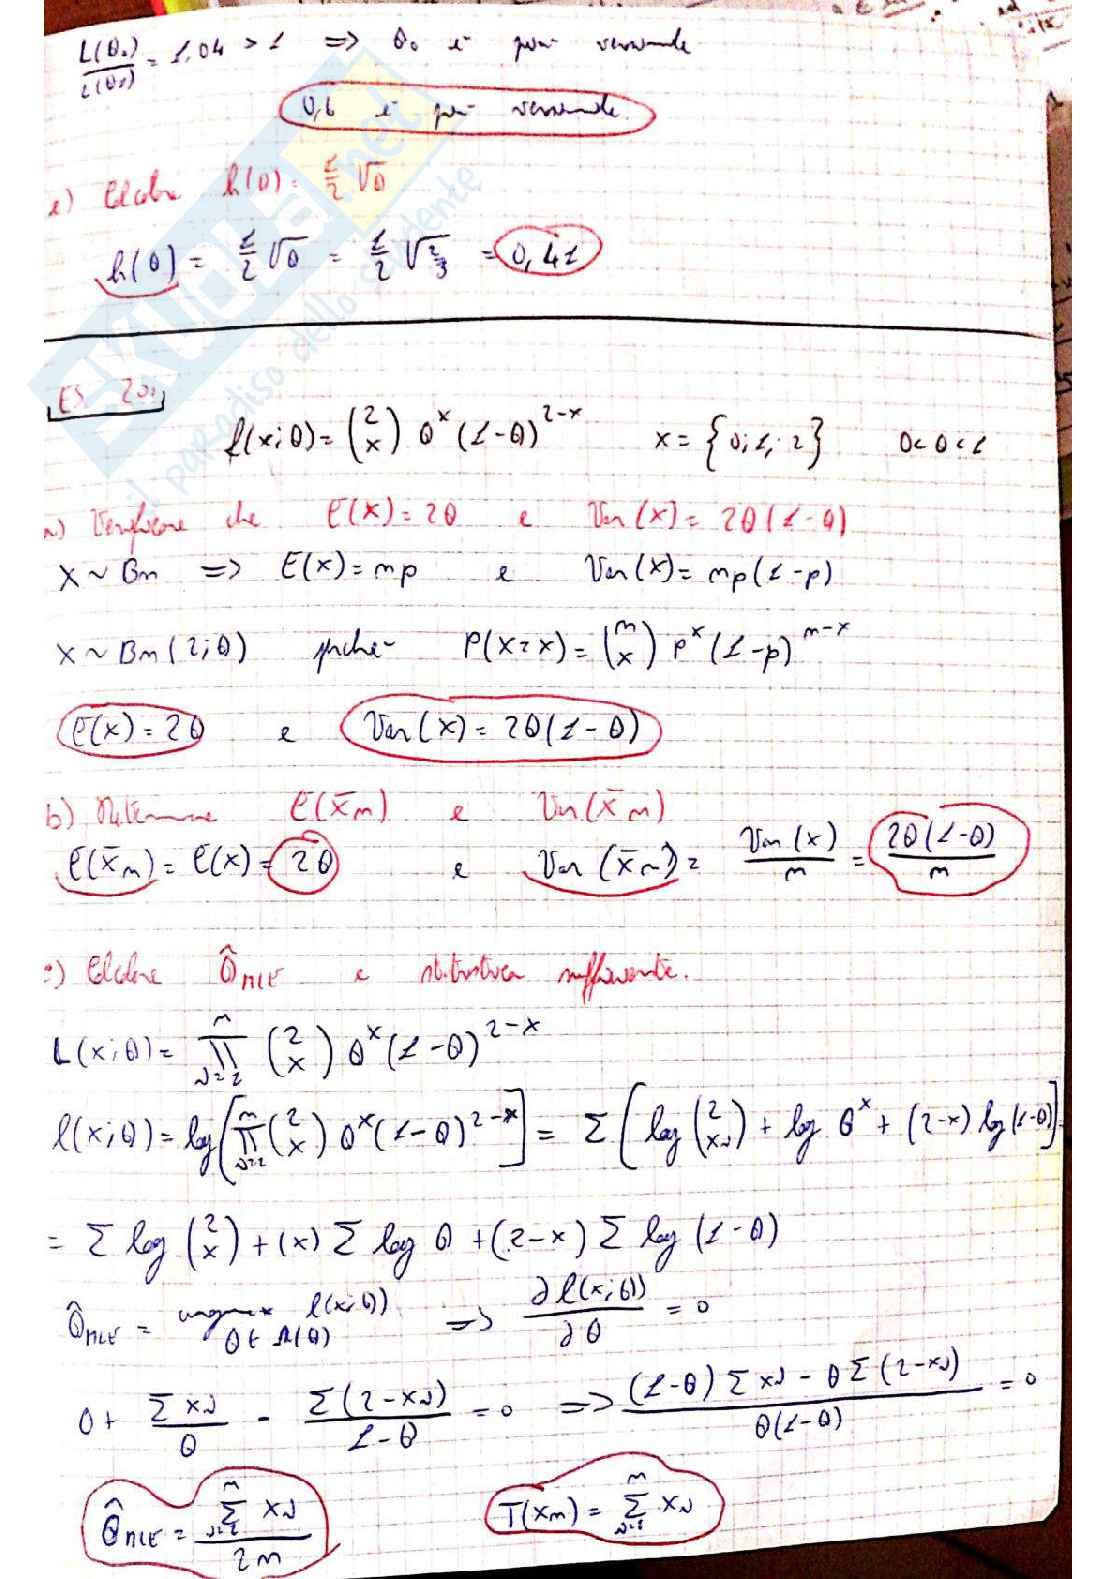 L(θ₀)/L(θ₁) = 1,04 > 1 => θ₀ è più verosimile
0,6 è più verosimile.
e) Calcolare h(θ) = 1/2 √θ
h(θ) = 1/2 √θ = 1/2 √(2/3) = 0,41
SKUOLA.net
il paradiso dello studente
ES. 20:
f(x;θ) = (2 x) θ^x (1-θ)^(2-x) x = {0; 1; 2} 0<θ<1
a) Verificare che E(x) = 2θ e Var(x) = 2θ(1-θ)
X ~ Bn => E(x) = np e Var(x) = np(1-p)
X ~ Bn(2;θ) perché P(X=x) = (n x) p^x (1-p)^(n-x)
E(x) = 2θ e Var(x) = 2θ(1-θ)
b) Determinare E(x̄n) e Var(x̄n)
E(x̄n) = E(x) = 2θ e Var(x̄n) = Var(x)/n = 2θ(1-θ)/n
c) Calcolare θ̂MLE e statistica sufficiente.
L(x;θ) = ∏ⁿᵢ₌₁ (2 x) θ^x (1-θ)^(2-x)
l(x;θ) = log[∏ⁿᵢ₌₁ (2 x) θ^x (1-θ)^(2-x)] = Σ [log (2 xi) + log θ^x + (2-x) log (1-θ)] =
= Σ log (2 x) + (x) Σ log θ + (2-x) Σ log (1-θ)
θ̂MLE = argmax l(x;θ) θ∈Λ(θ) => ∂l(x;θ)/∂θ = 0
0 + Σxi/θ - Σ(2-xi)/(1-θ) = 0 => ((1-θ) Σxi - θ Σ(2-xi))/(θ(1-θ)) = 0
θ̂MLE = Σⁿᵢ₌₁ xi/2n T(xn) = Σⁿᵢ₌₁ xi